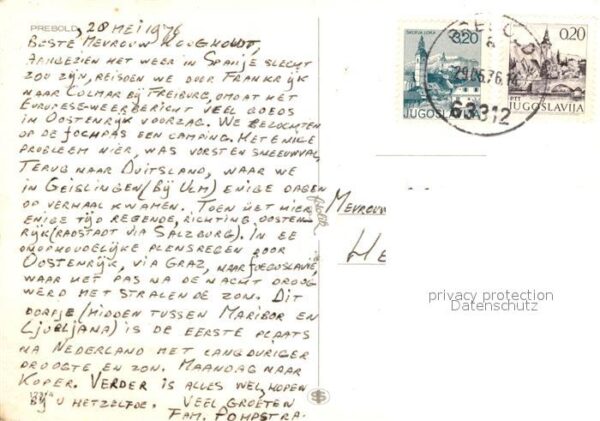 PREBOLD, 28 MEI 1976
BESTE MEVROUW HOUGHOUDT,
AANGEZIEN HET WEER IN SPANJE SLECHT
ZOU ZIJN, REISDEN WE DOOR FRANKRIJK
NAAR COLMAR BIJ FREIBURG, OMDAT HET
EUROPESE-WEERBERICHT VEEL GOEDS
IN OOSTENRIJK VOORZAG. WE BEZOCHTEN
OP DE FOCHPAS EEN CAMPING. HET ENIGE
PROBLEEM HIER, WAS VORST EN SNEEUWVAL
TERUG NAAR DUITSLAND, WAAR WE
IN GEISLINGEN (BIJ ULM) ENIGE DAGEN
OP VERHAAL KWAMEN. TOEN HET HIER
ENIGE TIJD REGENDE, RICHTING OOSTEN-
RIJK (RADSTADT VIA SALZBURG). IN EE
ONOPHOUDELIJKE PLENSREGEN DOOR
OOSTENRIJK, VIA GRAZ, NAAR JOEGOSLAVIË,
WAAR HET PAS NA DE NACHT DROOG
WERD MET STRALENDE ZON. DIT
DORPJE (MIDDEN TUSSEN MARIBOR EN
LJUBLJANA) IS DE EERSTE PLAATS
NA NEDERLAND MET LANGDURIGER
DROOGTE EN ZON. MAANDAG NAAR
KOPER. VERDER IS ALLES WEL, HOPEN
BIJ U HETZELFDE. VEEL GROETEN
FAM. POMPSTRA.
ŠKOFJA LOKA
3.20
JUGOSLAVIJA
0.20
PTT
JUGOSLAVIJA
29.05.76.14
63312
MEVROUW
HE
privacy protection
Datenschutz